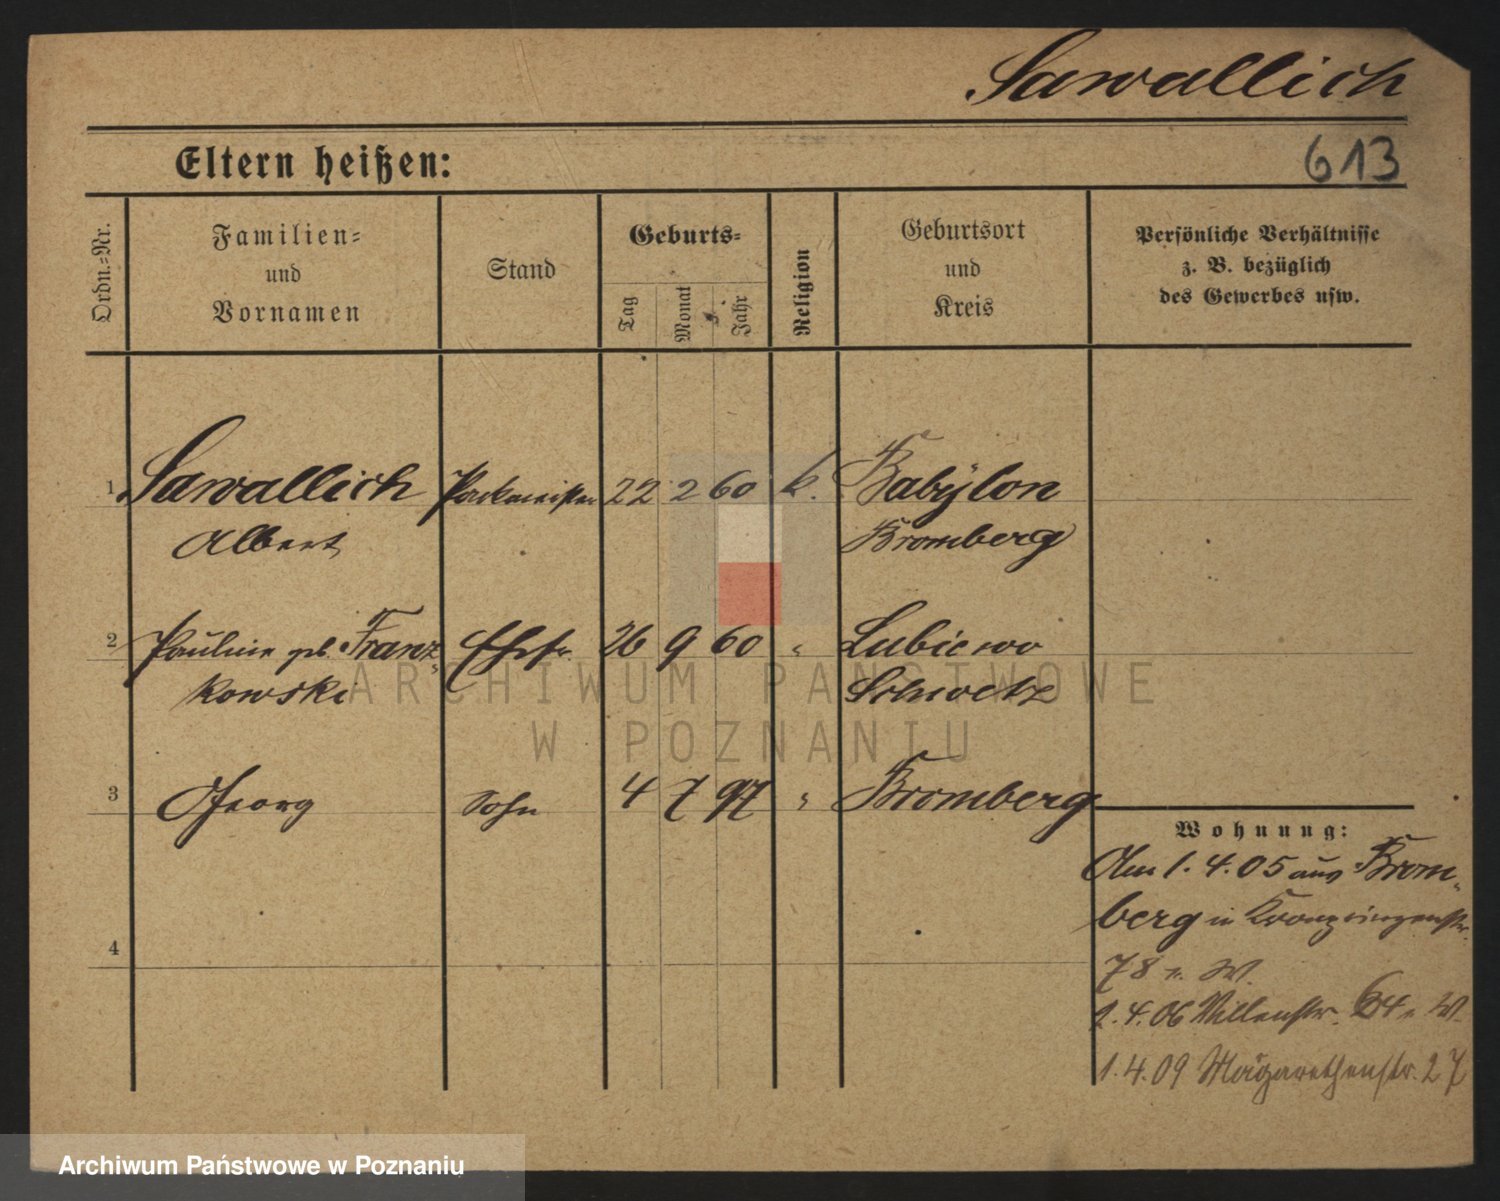 Sawallich
Eltern heißen:
613
Ordn.-Nr.
Familien-
und
Vornamen
Stand
Geburts-
Tag
Monat
Jahr
Religion
Geburtsort
und
Kreis
Persönliche Verhältnisse
z. B. bezüglich
des Gewerbes usw.
1 Sawallich Packmeister 22 2 60 k. Babylon
Albert Bromberg
2 Pauline geb. Franz- Ehefr. 26 9 60 " Lubiewo
kowski Schwetz
3 Georg Sohn 4 7 97 " Bromberg
Wohnung:
Am 1.4.05 aus Brom-
berg in Kronprinzenstr.
78 n. W.
1.4.06 Villenstr. 64 n. W.
1.4.09 Margarethenstr. 27
4
ARCHIWUM PAŃSTWOWE
W POZNANIU
Archiwum Państwowe w Poznaniu